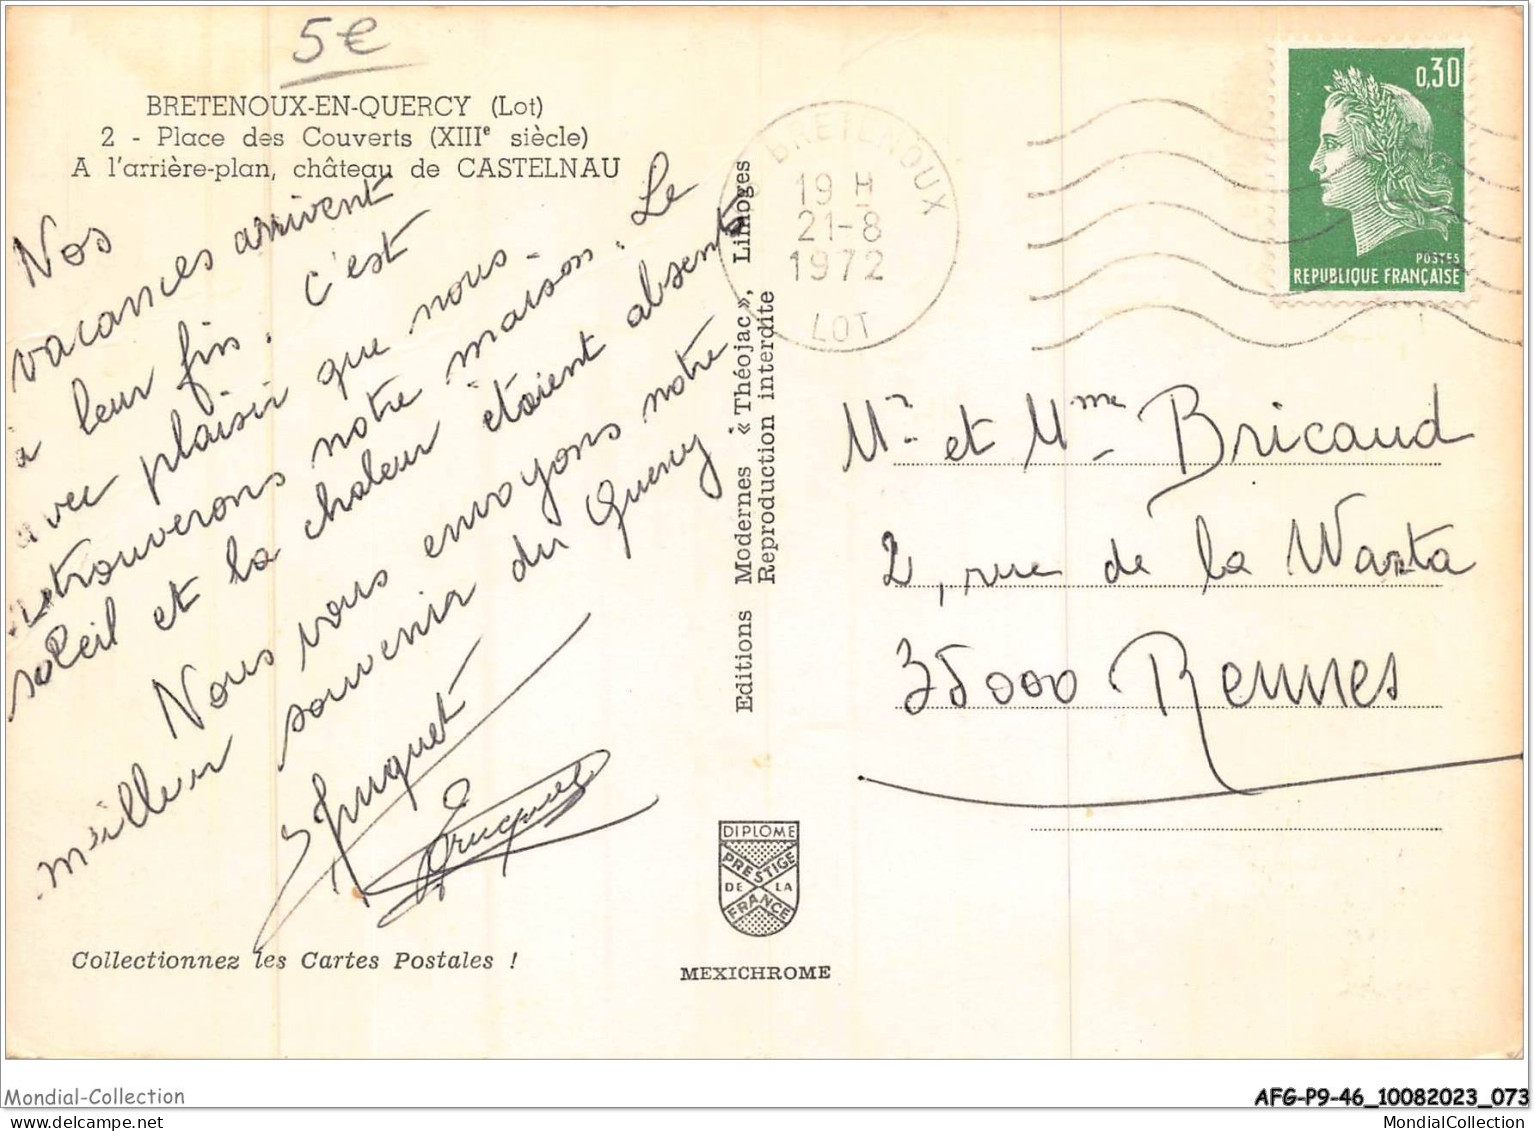 5€
BRETENOUX-EN-QUERCY (Lot)
2 - Place des Couverts (XIIIe siècle)
A l'arrière-plan, château de CASTELNAU
Nos
vacances arrivent
à leur fin. c'est
avec plaisir que nous
retrouverons notre maison. Le
soleil et la chaleur étaient absents
Nous vous envoyons notre
meilleur souvenir du Quercy
Editions Modernes « Théojac », Limoges
Reproduction interdite
BRETENOUX
19 H
21-8
1972
LOT
0,30
POSTES
REPUBLIQUE FRANÇAISE
Mr et Mme Bricaud
2, rue de la Warta
35000 Rennes
DIPLOME
PRESTIGE
DE LA
FRANCE
MEXICHROME
Collectionnez les Cartes Postales !
Mondial-Collection
AFG-P9-46_10082023_073
MondialCollection